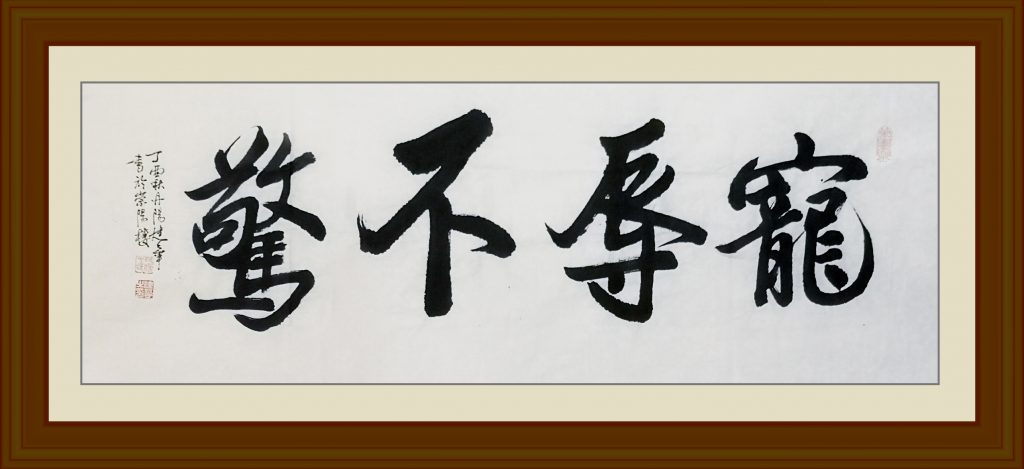 寵辱不驚
丁酉秋丹陽
書於崇陽樓